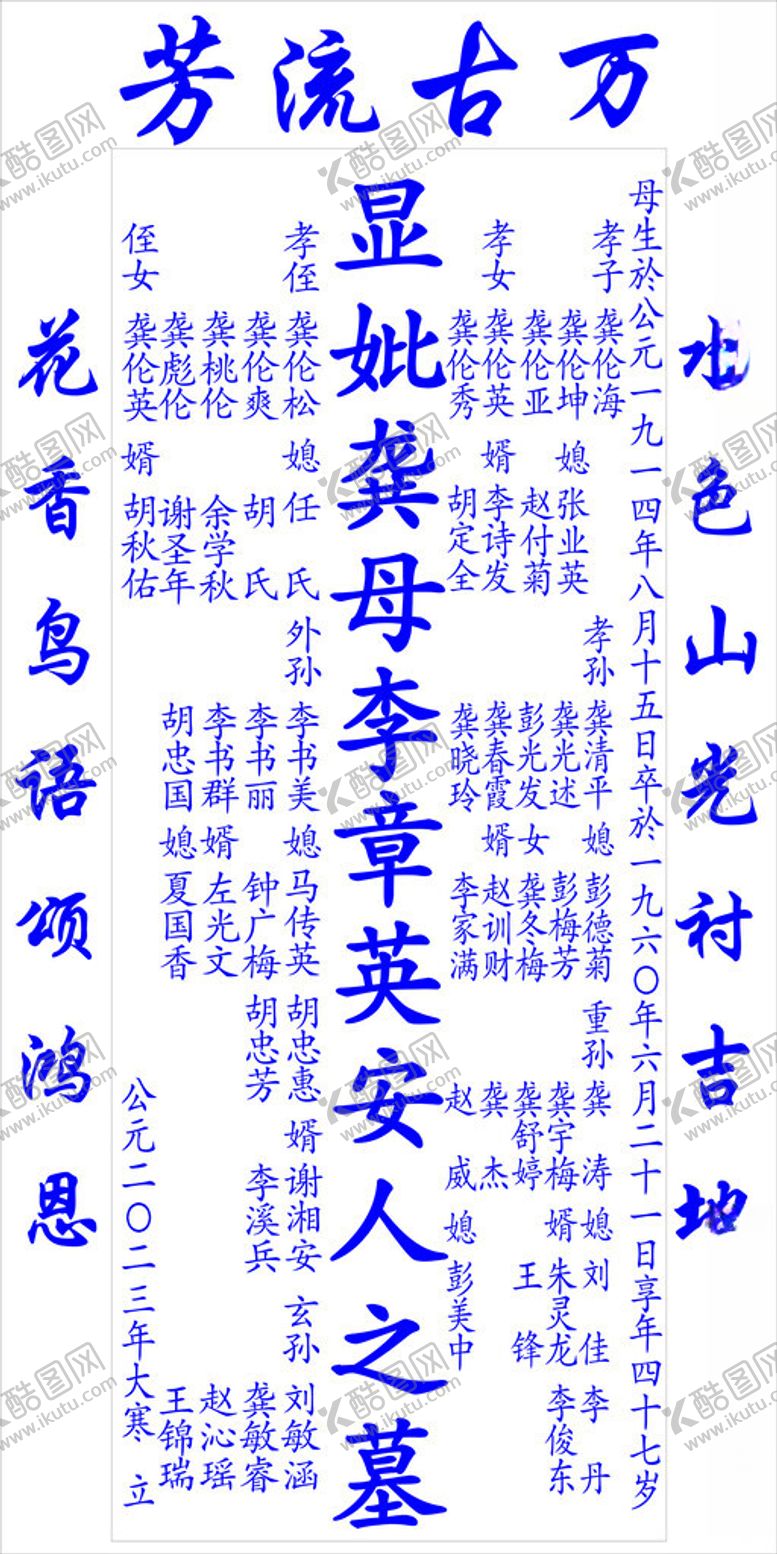 万古流芳
水色山光衬吉地
母生於公元一九一四年八月十五日卒於一九六〇年六月二十一日享年四十七岁
孝子 龚伦海 媳 张业英
龚伦坤 赵付菊
龚伦亚
孝女 龚伦英 婿 李诗发
龚伦秀 胡定全
孝孙 龚清平 媳 彭德菊
龚光述 彭梅芳
彭光发 女 龚冬梅
龚春霞 婿 赵训财
龚晓玲 李家满
重孙 龚涛 媳 刘佳 李丹
龚宇梅 婿 朱灵龙 李俊东
龚舒婷 王锋
龚杰
赵威 媳 彭美中
显妣龚母李章英安人之墓
孝侄 龚伦松 媳 任氏
龚伦爽 胡氏
龚桃伦 余学秋
龚彪伦 谢圣年
侄女 龚伦英 婿 胡秋佑
外孙 李书美 媳 马传英 胡忠惠 婿 谢湘安
李书丽 钟广梅 胡忠芳 李溪兵
李书群 婿 左光文
胡忠国 媳 夏国香
玄孙 刘敏涵
龚敏睿
赵沁瑶
王锦瑞
公元二〇二三年大寒 立
花香鸟语颂鸿恩
酷图网
www.ikutu.com